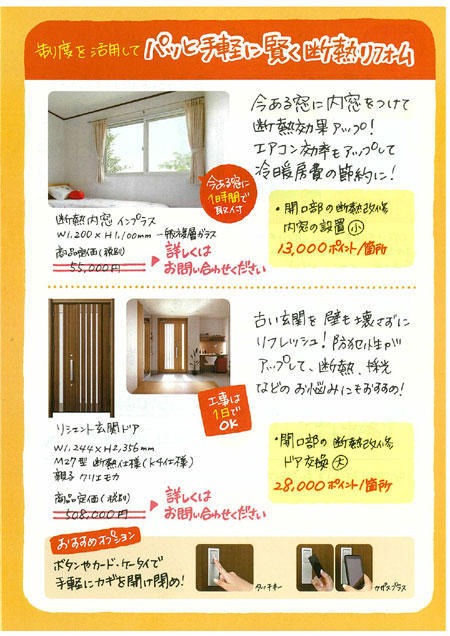 制度を活用して パッと手軽に賢く断熱リフォーム
今ある窓に内窓をつけて
断熱効果アップ!
エアコン効率もアップして
冷暖房費の節約に!
今ある窓に
1時間で
取付
断熱内窓 インプラス
W1,200×H1,100mm 一般複層ガラス
商品定価(税別)
55,000円
詳しくは
お問い合わせください
・開口部の断熱改修
内窓の設置 小
13,000ポイント/箇所
古い玄関を壁も壊さずに
リフレッシュ!防犯性が
アップして、断熱、採光
などのお悩みにもおすすめ!
工事は
1日で
OK
リシェント玄関ドア
W1,244×H2,356mm
M27型 断熱仕様(k4仕様)
親子 クリエモカ
商品定価(税別)
508,000円
詳しくは
お問い合わせください
・開口部の断熱改修
ドア交換 大
28,000ポイント/箇所
おすすめオプション
ボタンやカード・ケータイで
手軽にカギを開け閉め!
タッチキー
カザスプラス